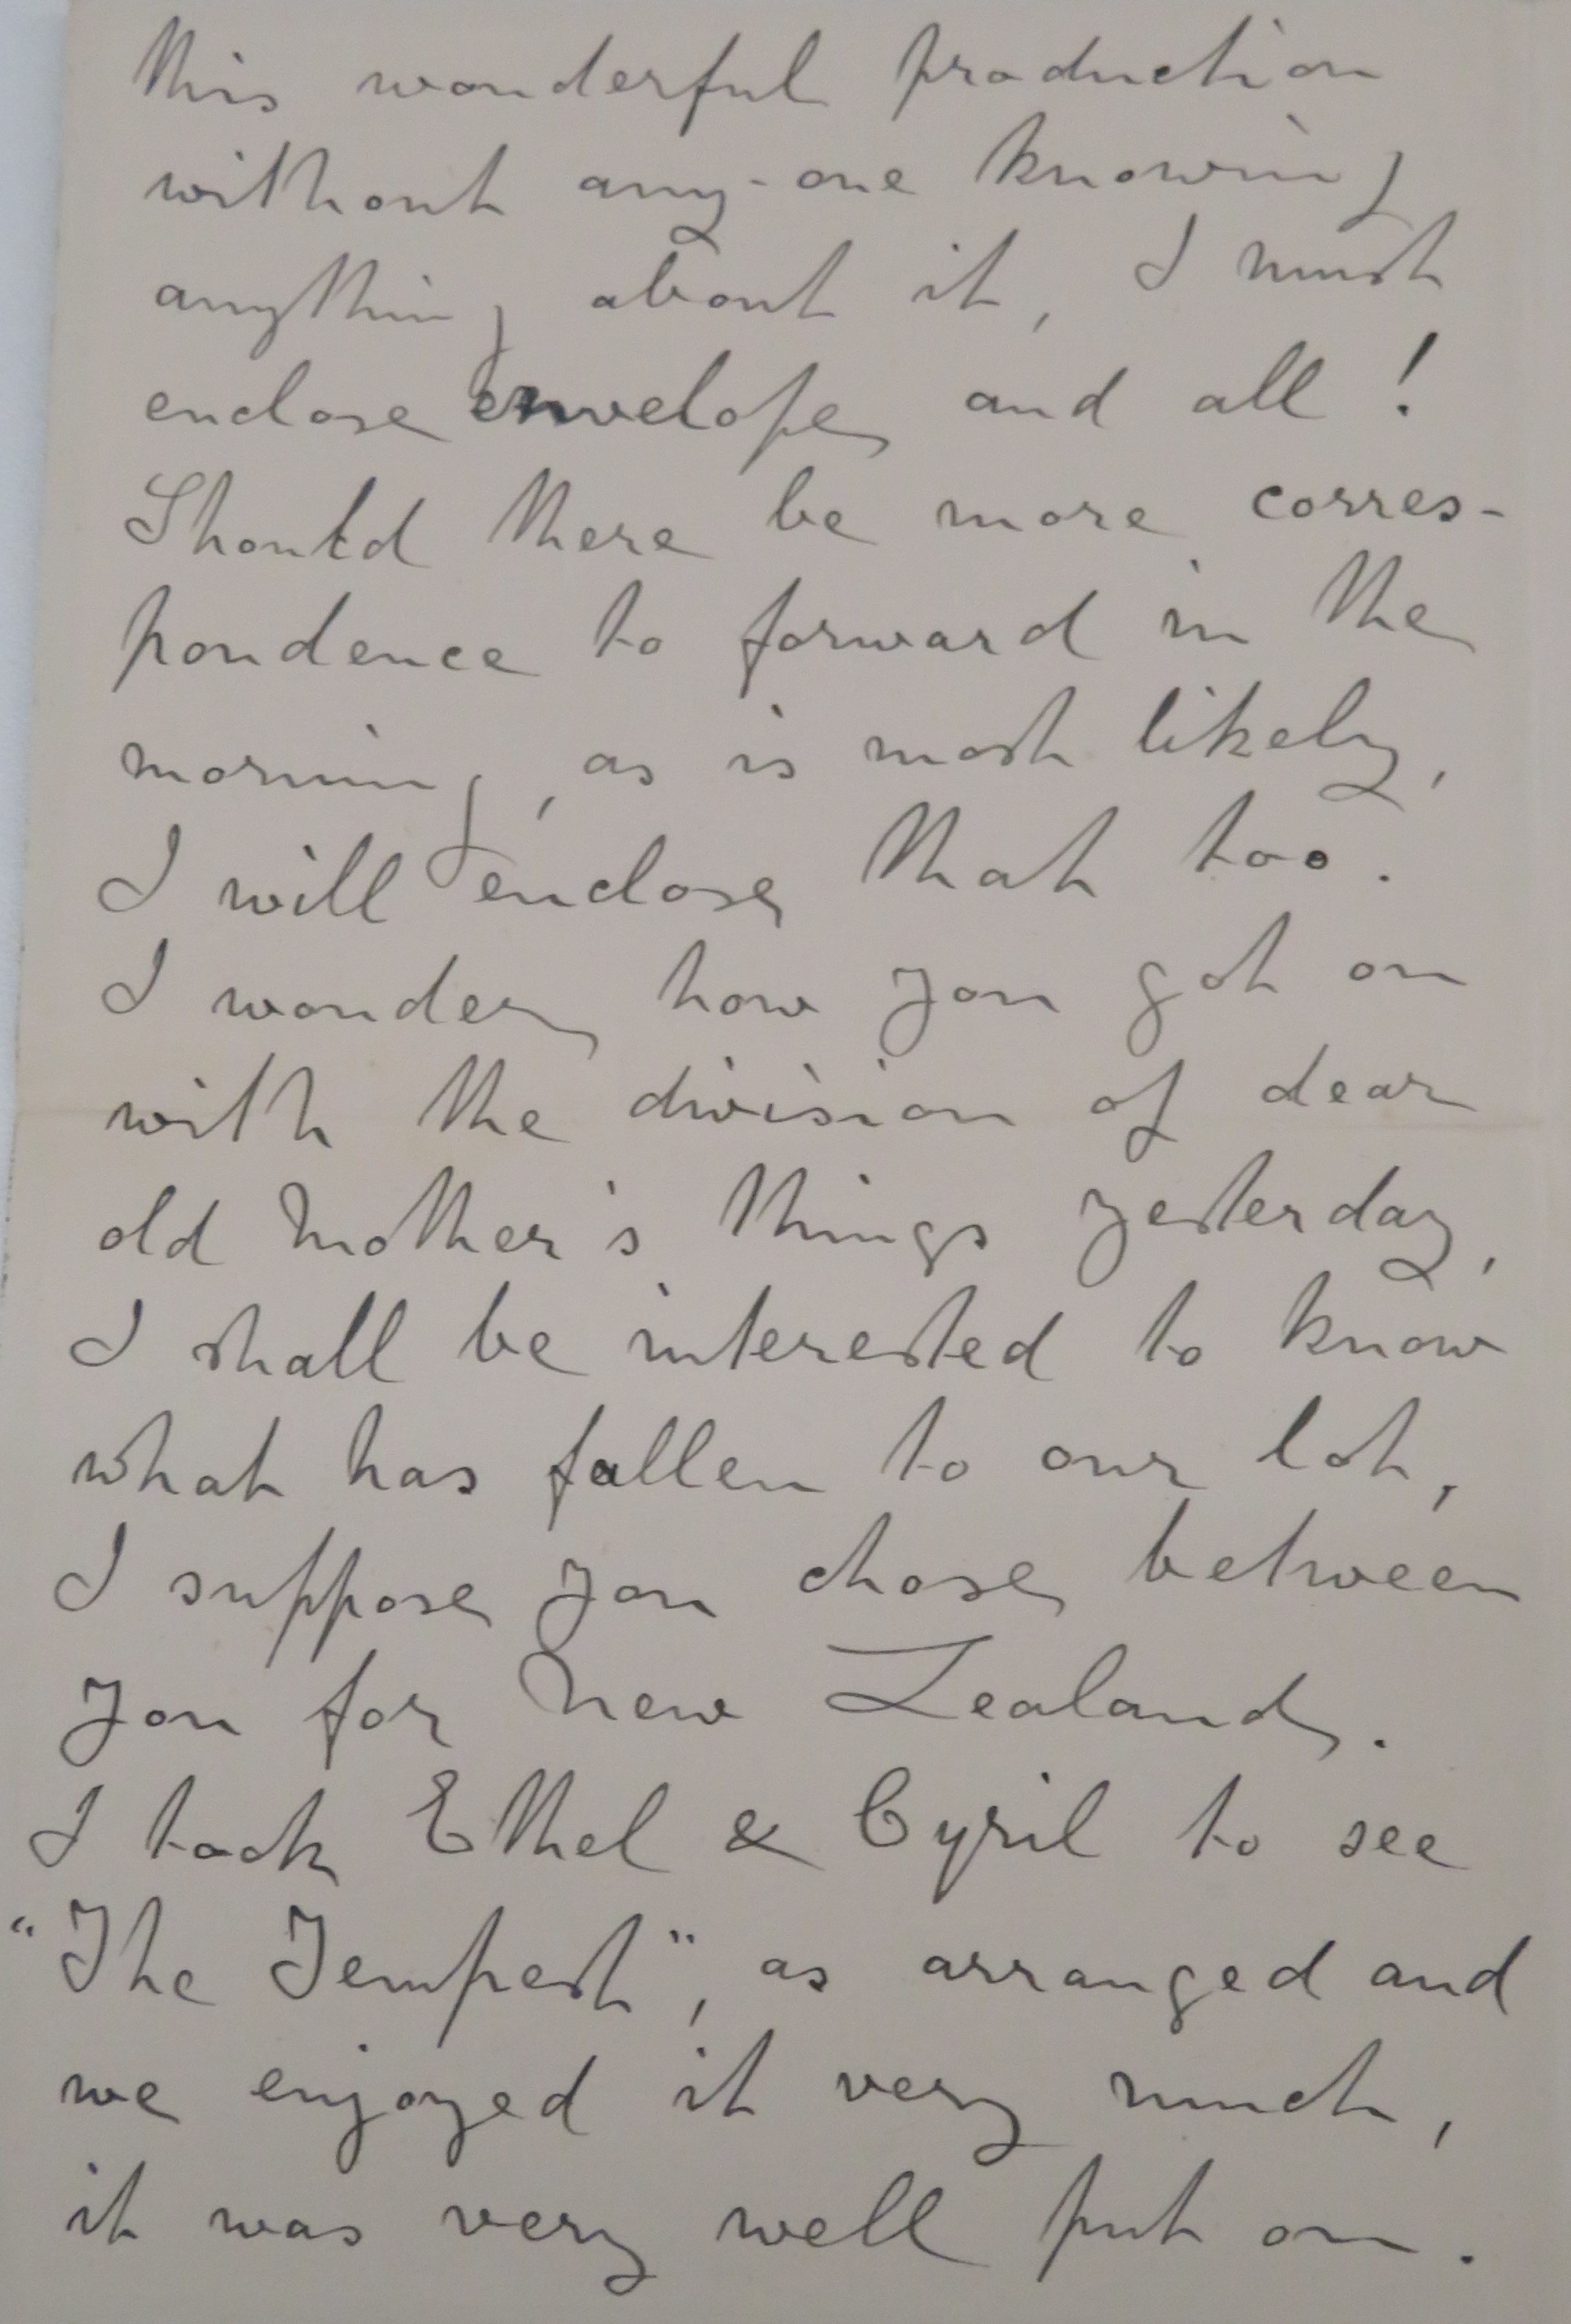 this wonderful production
without any-one knowing
anything about it, I must
enclose envelope and all!
Should there be more corres-
pondence to forward in the
morning, as is most likely,
I will enclose that too.
I wonder how you got on
with the division of dear
old Mother's things yesterday,
I shall be interested to know
what has fallen to our lot,
I suppose you chose between
you for New Zealand.
I took Ethel & Cyril to see
"The Tempest", as arranged and
we enjoyed it very much,
it was very well put on.